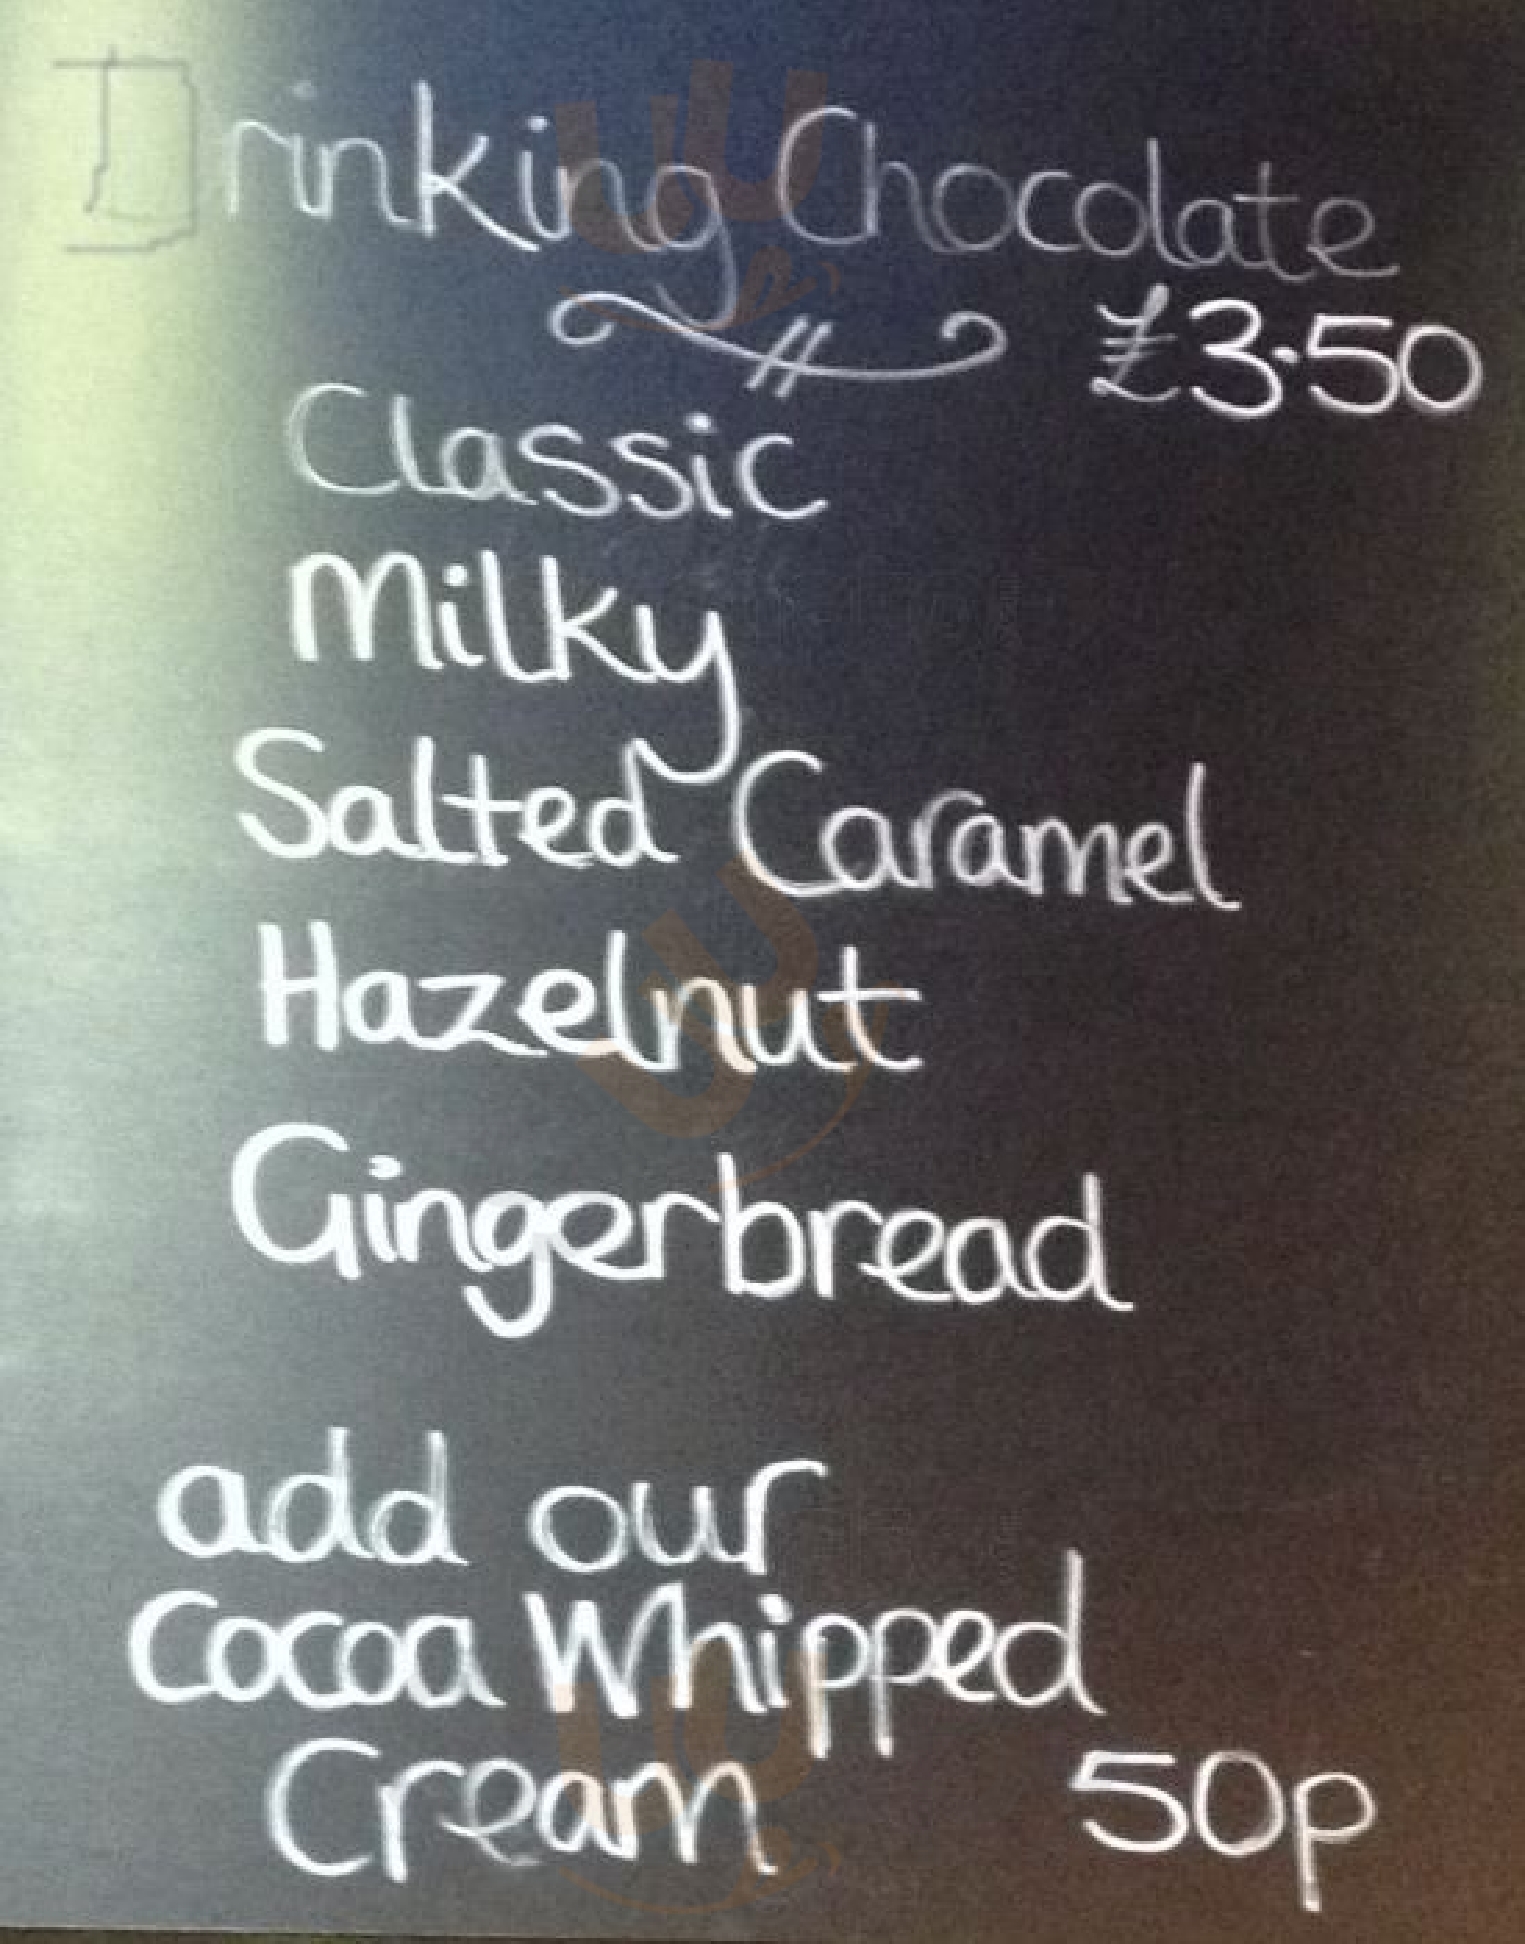 Drinking Chocolate
£3.50
Classic
Milky
Salted Caramel
Hazelnut
Gingerbread
add our
Cocoa Whipped
Cream 50p